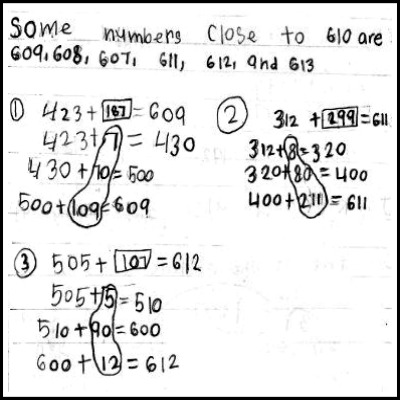 Some numbers close to 610 are
609, 608, 607, 611, 612, and 613
① 423 + 187 = 609
423 + 7 = 430
430 + 70 = 500
500 + 109 = 609
② 312 + 299 = 611
312 + 8 = 320
320 + 80 = 400
400 + 211 = 611
③ 505 + 107 = 612
505 + 5 = 510
510 + 90 = 600
600 + 12 = 612